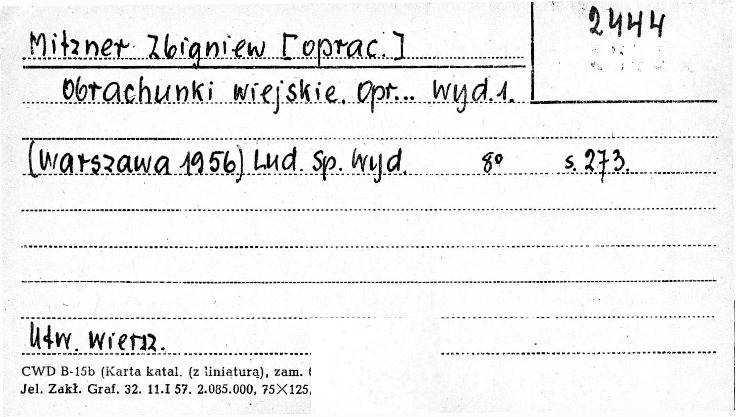 2444
Mitzner Zbigniew [oprac.]
Obrachunki wiejskie. Opr... Wyd.1.
(Warszawa 1956) Lud. Sp. Wyd. 8° s. 273.
Utw. wiersz.
CWD B-15b (Karta katal. (z liniaturą), zam.
Jel. Zakł. Graf. 32. 11.I 57. 2.085.000, 75×125,